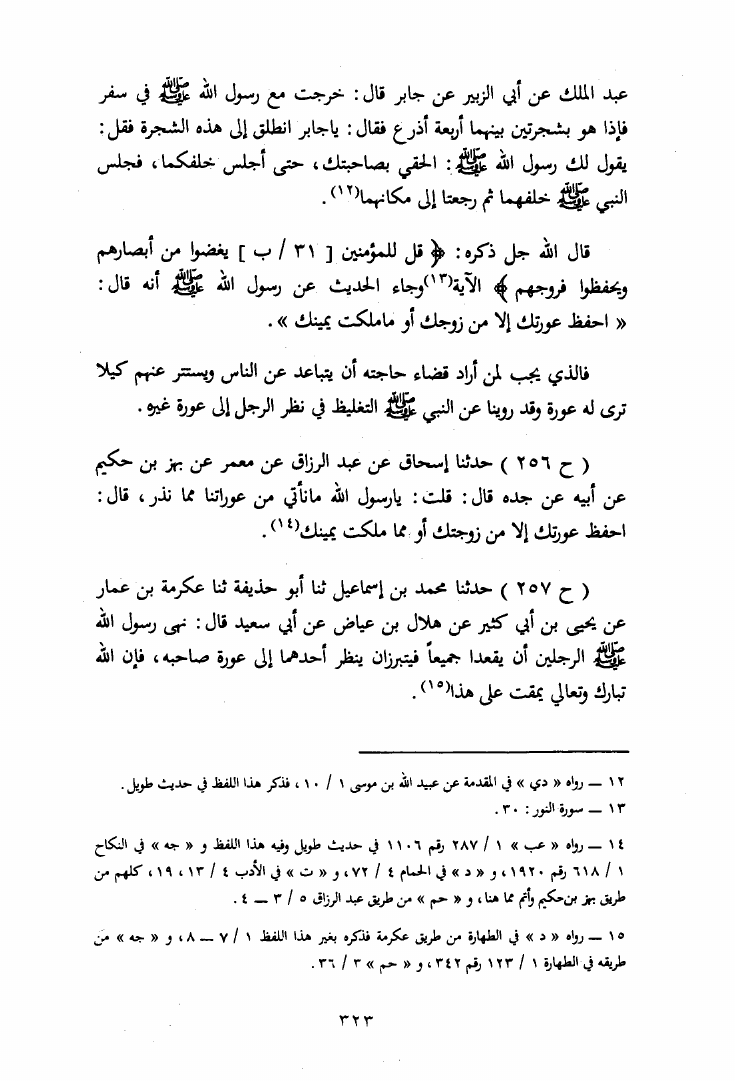 عبد الملك عن أبي الزبير عن جابر قال: خرجت مع رسول الله ﷺ في سفر
فإذا هو بشجرتين بينهما أربعة أذرع فقال: ياجابر انطلق إلى هذه الشجرة فقل:
يقول لك رسول الله ﷺ: الحقي بصاحبتك، حتى أجلس خلفكما، فجلس
النبي ﷺ خلفهما ثم رجعتا إلى مكانهما(١٢).
قال الله جل ذكره: ﴿ قل للمؤمنين [ ٣١ / ب ] يغضوا من أبصارهم
ويحفظوا فروجهم ﴾ الآية(١٣)وجاء الحديث عن رسول الله ﷺ أنه قال:
« احفظ عورتك إلا من زوجك أو ماملكت يمينك ».
فالذي يجب لمن أراد قضاء حاجته أن يتباعد عن الناس ويستتر عنهم كيلا
ترى له عورة وقد روينا عن النبي ﷺ التغليظ في نظر الرجل إلى عورة غيره.
( ح ٢٥٦ ) حدثنا إسحاق عن عبد الرزاق عن معمر عن بهز بن حكيم
عن أبيه عن جده قال: قلت: يارسول الله مانأتي من عوراتنا مما نذر، قال:
احفظ عورتك إلا من زوجتك أو مما ملكت يمينك(١٤).
( ح ٢٥٧ ) حدثنا محمد بن إسماعيل ثنا أبو حذيفة ثنا عكرمة بن عمار
عن يحيى بن أبي كثير عن هلال بن عياض عن أبي سعيد قال: نهى رسول الله
ﷺ الرجلين أن يقعدا جميعاً فيتبرزان ينظر أحدهما إلى عورة صاحبه، فإن الله
تبارك وتعالي يمقت على هذا(١٥).
١٢ — رواه « دي » في المقدمة عن عبيد الله بن موسى ١ / ١٠، فذكر هذا اللفظ في حديث طويل.
١٣ — سورة النور: ٣٠.
١٤ — رواه « عب » ١ / ٢٨٧ رقم ١١٠٦ في حديث طويل وفيه هذا اللفظ و « جه » في النكاح
١ / ٦١٨ رقم ١٩٢٠، و « د » في الحمام ٤ / ٧٢، و « ت » في الأدب ٤ / ١٣، ١٩، كلهم من
طريق بهز بن حكيم وأتم مما هنا، و « حم » من طريق عبد الرزاق ٥ / ٣ — ٤.
١٥ — رواه « د » في الطهارة من طريق عكرمة فذكره بغير هذا اللفظ ١ / ٧ — ٨، و « جه » من
طريقه في الطهارة ١ / ١٢٣ رقم ٣٤٢، و « حم » ٣ / ٣٦.
٣٢٣